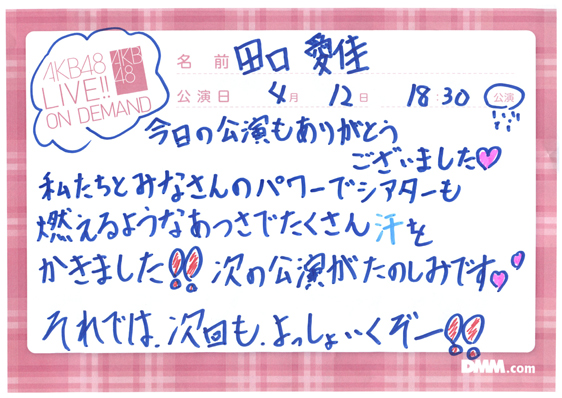 AKB48
LIVE!!
ON DEMAND
AKB
48
名前 田口 愛佳
公演日 4月 12日 18:30 公演
今日の公演もありがとう
ございました♥
私たちとみなさんのパワーでシアターも
燃えるようなあつさでたくさん汗を
かきました!! 次の公演がたのしみです♥♥
それでは、次回も、よっしょいくぞー!!
DMM.com